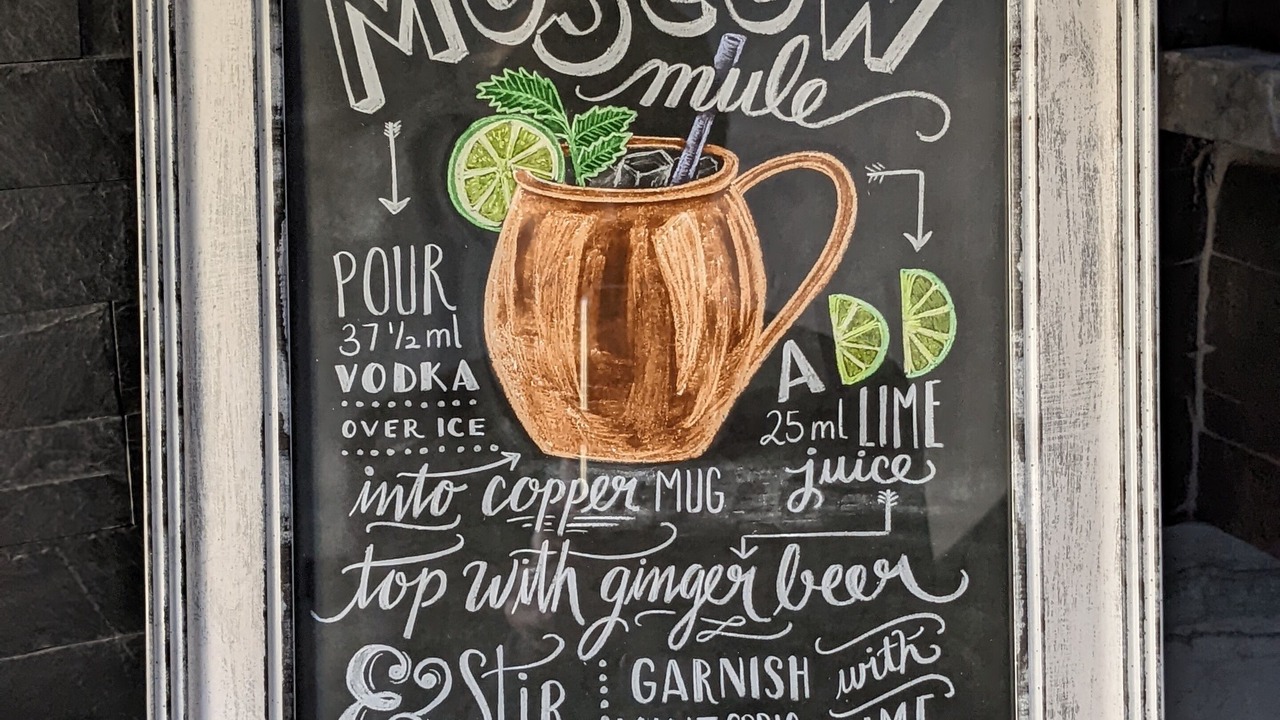 MOSCOW
mule
POUR
37 1/2 ml
VODKA
OVER ICE
into copper MUG
A
25 ml LIME
juice
top with ginger beer
& Stir
GARNISH with